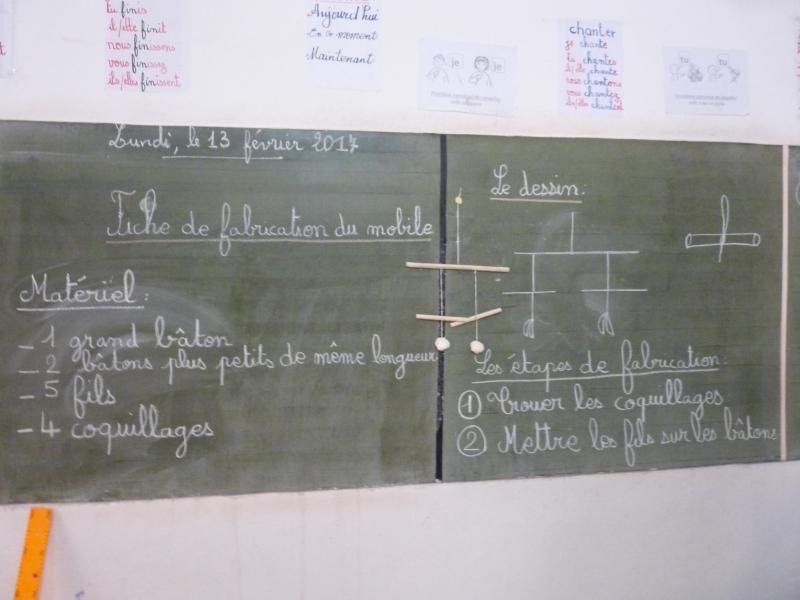 tu finis
il/elle finit
nous finissons
vous finissez
ils/elles finissent
Aujourd'hui
En ce moment
Maintenant
je
je
chanter
je chante
tu chantes
il/elle chante
nous chantons
vous chantez
ils/elles chantent
tu
tu
Lundi, le 13 février 2017
Fiche de fabrication du mobile
Matériel:
- 1 grand bâton
- 2 bâtons plus petits de même longueur
- 5 fils
- 4 coquillages
Le dessin:
Les étapes de fabrication:
① Trouer les coquillages
② Mettre les fils sur les bâtons